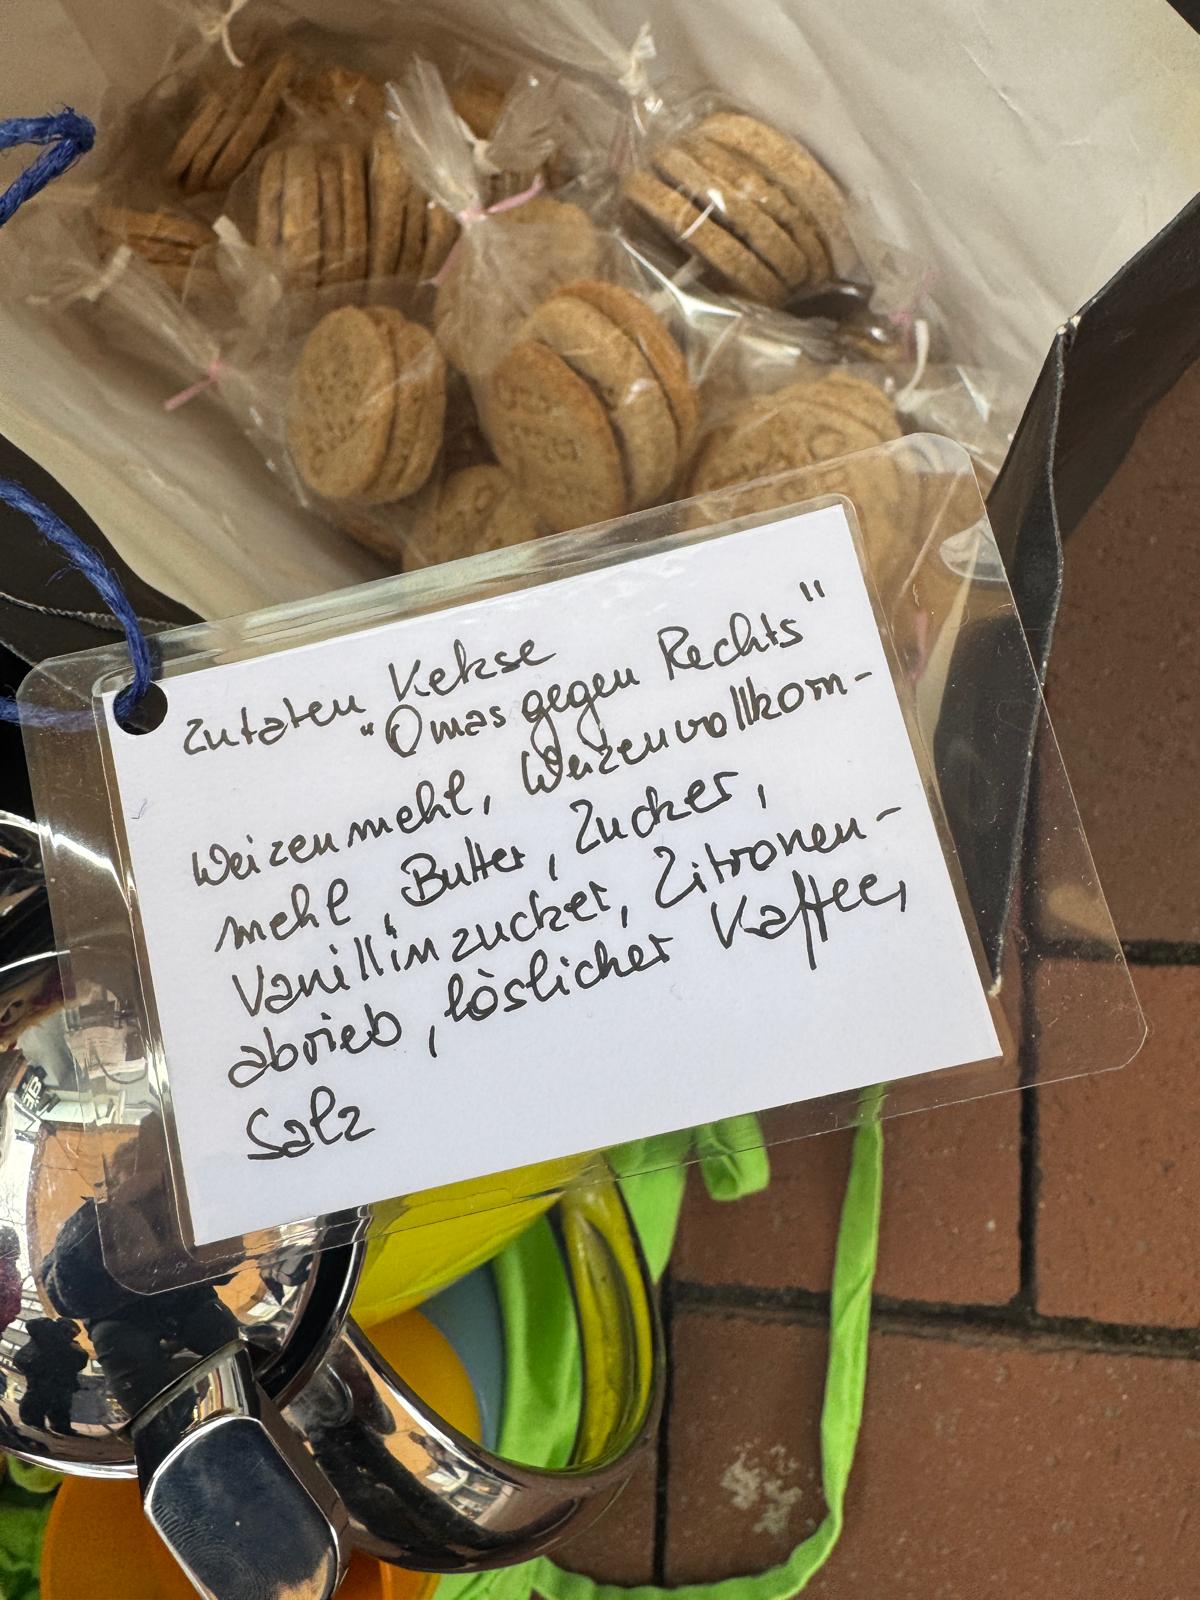 Zutaten Kekse
"Omas gegen Rechts"
Weizenmehl, Weizenvollkorn-
mehl, Butter, Zucker,
Vanillinzucker, Zitronen-
abrieb, löslicher Kaffee,
Salz